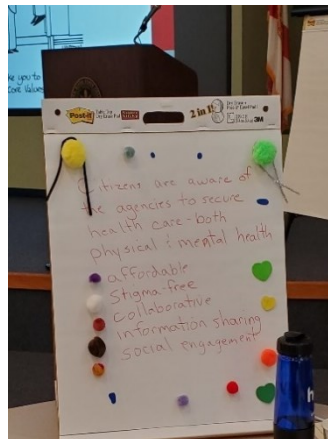 ke you to
Core Values
Post-it
2 in 1!
3M
Citizens are aware of
the agencies to secure
health care - both
physical & mental health
affordable
Stigma-free
collaborative
information sharing
social engagement
h